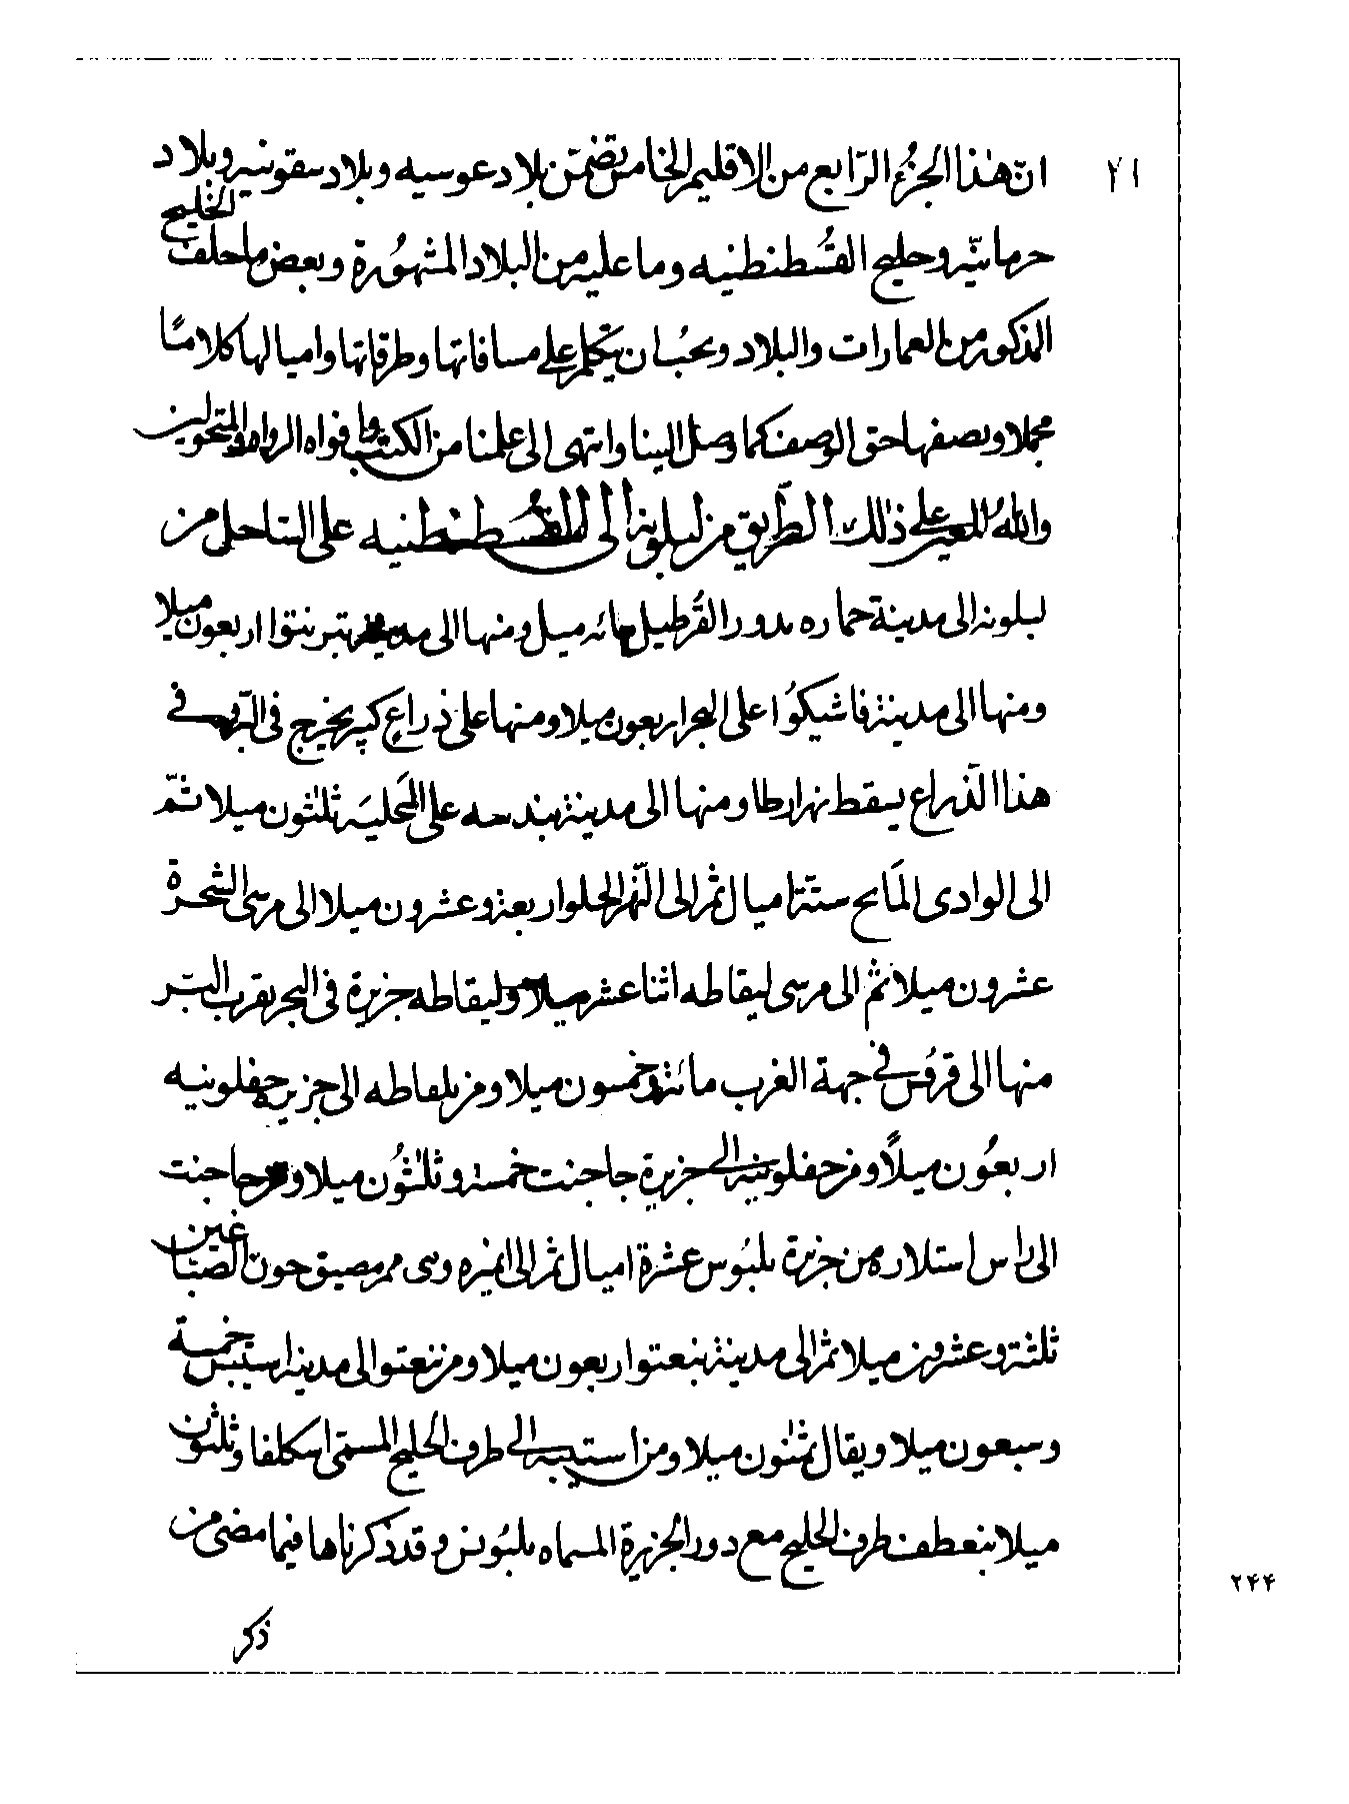 ٢١
ان هذا الجزء الرابع من الاقليم الخامس تضمن بلاد عوسيه وبلاد سقونيه وبلاد
حرمانيه وخليج القسطنطنيه وما عليه من البلاد المشهورة وبعض ما خلف الخليج
المذكور من العمارات والبلاد ويجب ان يتكلم على مسافاتها وطرقاتها واميالها كلاما
مجملا ويصفها حق الوصف كما وصل الينا وانتهى الى علمنا من الكتب وافواه الرواه والمتجولين
والله المعين على ذلك الطريق من لبلونه الى القسطنطنيه على الساحل من
لبلونه الى مدينة حماره بدور القرطيل مائه ميل ومنها الى مدينة تبرنتوا اربعون ميلا
ومنها الى مدينة فاشيكوا على البحر اربعون ميلا ومنها على ذراع كبير يخرج في البر وفي
هذا الذراع يسقط نهر ارطا ومنها الى مدينة بندسه على المحلية ثلثون ميلا ثم
الى الوادى المالح ستة اميال ثم الى النهر الحلو اربعة وعشرون ميلا الى مرسى الشجرة
عشرون ميلا ثم الى مرسى ليقاطه اثنا عشر ميلا وليقاطه جزيرة في البحر بقرب البر
منها الى قرفس في جهة الغرب مائة وخمسون ميلا ومن بلقاطه الى جزيرة جفلونيه
اربعون ميلا ومن جفلونيه الى جزيرة جاجنت خمسة وثلثون ميلا ومن جاجنت
الى راس استلاره من جزيرة بلبوس عشرة اميال ثم الى ابنره وهى ممر مضيق جون الصباغين
ثلثة وعشرون ميلا ثم الى مدينة بنعتوا اربعون ميلا ومن بنعتوا الى مدينة استيبس خمسة
وسبعون ميلا ويقال ثمنون ميلا ومن استيبه الى طرف الخليج المسمى اسكلفا وثلثون
ميلا ينعطف طرف الخليج مع دور الجزيرة المسماه بلبونس وقد ذكرناها فيما مضى من
ذكر
٢۴۴